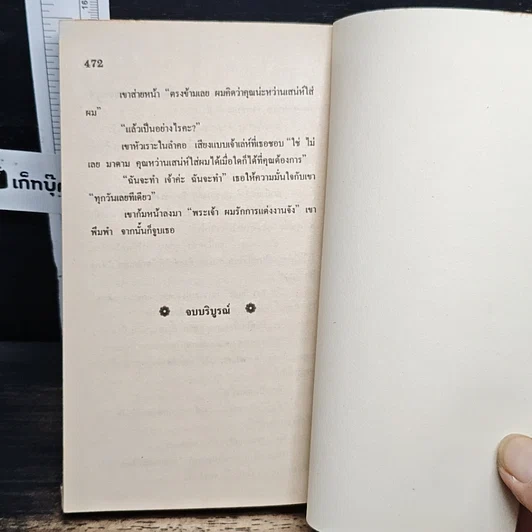 472
เขาส่ายหน้า “ตรงข้ามเลย ผมคิดว่าคุณน่ะหว่านเสน่ห์ใส่
ผม”
“แล้วเป็นอย่างไรคะ?”
เขาหัวเราะในลำคอ เสียงแบบเจ้าเล่ห์ที่เธอชอบ “ใช่ ไม่
เลย มาดาม คุณหว่านเสน่ห์ใส่ผมได้เมื่อใดก็ได้ที่คุณต้องการ”
“ฉันจะทำ เจ้าค่ะ ฉันจะทำ” เธอให้ความมั่นใจกับเขา
“ทุกวันเลยทีเดียว”
เขาก้มหน้าลงมา “พระเจ้า ผมรักการแต่งงานจัง” เขา
พึมพำ จากนั้นก็จูบเธอ
จบบริบูรณ์
เก็ทบุ๊ค